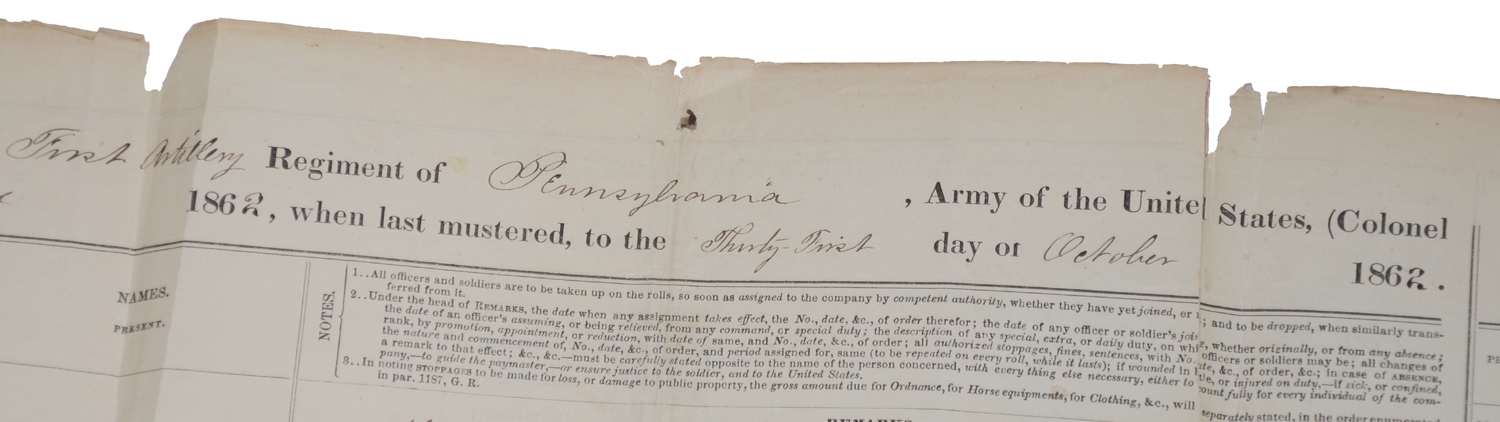 First Artillery Regiment of Pennsylvania , Army of the Unite States, (Colonel
1862, when last mustered, to the Thirty-First day of October 1862.
NAMES.
PRESENT.
NOTES.
1..All officers and soldiers are to be taken up on the rolls, so soon as assigned to the company by competent authority, whether they have yet joined, or ; and to be dropped, when similarly trans-
ferred from it.
2..Under the head of REMARKS, the date when any assignment takes effect, the No., date, &c., of order therefor; the date of any officer or soldier's , whether originally, or from any absence;
the date of an officer's assuming, or being relieved, from any command, or special duty; the description of any special, extra, or daily duty, on officers or soldiers may be; all changes of
rank, by promotion, appointment, or reduction, with date of same, and No., date, &c., of order; all authorized stoppages, fines, sentences, with No. &c., of order, &c.; in case of ABSENCE,
the nature and commencement of, No., date, &c., of order, and period assigned for, same (to be repeated on every roll, while it lasts); if wounded in or injured on duty,—if sick, or confined,
a remark to that effect; &c., &c.—must be carefully stated opposite to the name of the person concerned, with everything else necessary, either to fully for every individual of the com-
pany,—to guide the paymaster,—or ensure justice to the soldier, and to the United States.
3..In noting STOPPAGES to be made for loss, or damage to public property, the gross amount due for Ordnance, for Horse equipments, for Clothing, &c., will separately stated, in the order enumerated
in par. 1187, G. R.
REMARKS